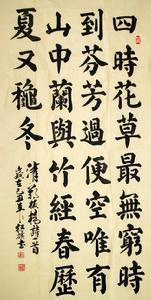 四時花草最無窮時
到芬芳過便空唯有
山中蘭與竹經春歷
夏又穐冬
清鄭板橋詩一首